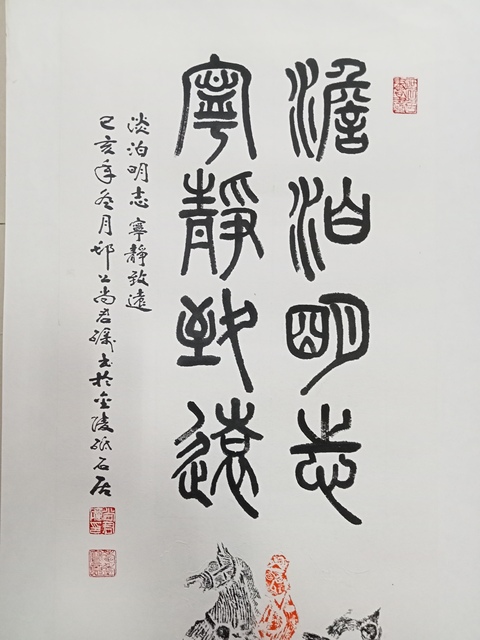 澹泊明志
寧靜致遠
淡泊明志 寧靜致遠
己亥年冬月尚君礪书於金陵砥石居